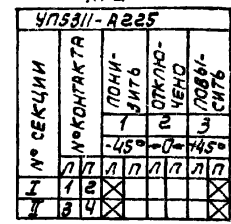 УП5311-А225
№ СЕКЦИИ
№КОНТАКТА
ПОНИ-
ЗИТЬ
ОТКЛЮ-
ЧЕНО
ПОВЫ-
СИТЬ
1 2 3
-45° 0 +45°
Л П Л П Л П
I 1 2
II 3 4